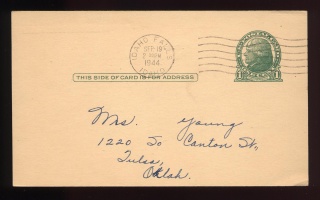 IDAHO FALLS
SEP 19
1944
IDAHO
THIS SIDE OF CARD IS FOR ADDRESS
1 1
Mrs. Young
1220 So Canton St.,
Tulsa,
Oklah.